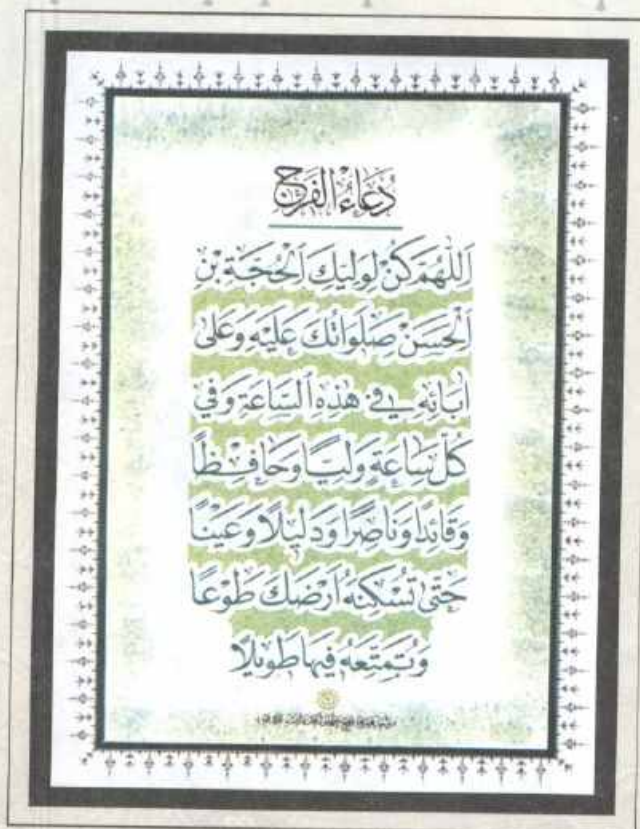 دُعَاءُ الْفَرَج
اَللّٰهُمَّ كُنْ لِوَلِيِّكَ الْحُجَّةِ بْنِ
الْحَسَنْ صَلَوَاتُكَ عَلَيْهِ وَعَلىٰ
اٰبَائِهِ فِي هٰذِهِ السَّاعَةِ وَفِي
كُلِّ سَاعَةٍ وَلِيًّا وَحَافِظًا
وَقَائِدًا وَنَاصِرًا وَدَلِيلًا وَعَيْنًا
حَتّىٰ تُسْكِنَهُ اَرْضَكَ طَوْعًا
وَتُمَتِّعَهُ فِيهَا طَوِيلًا